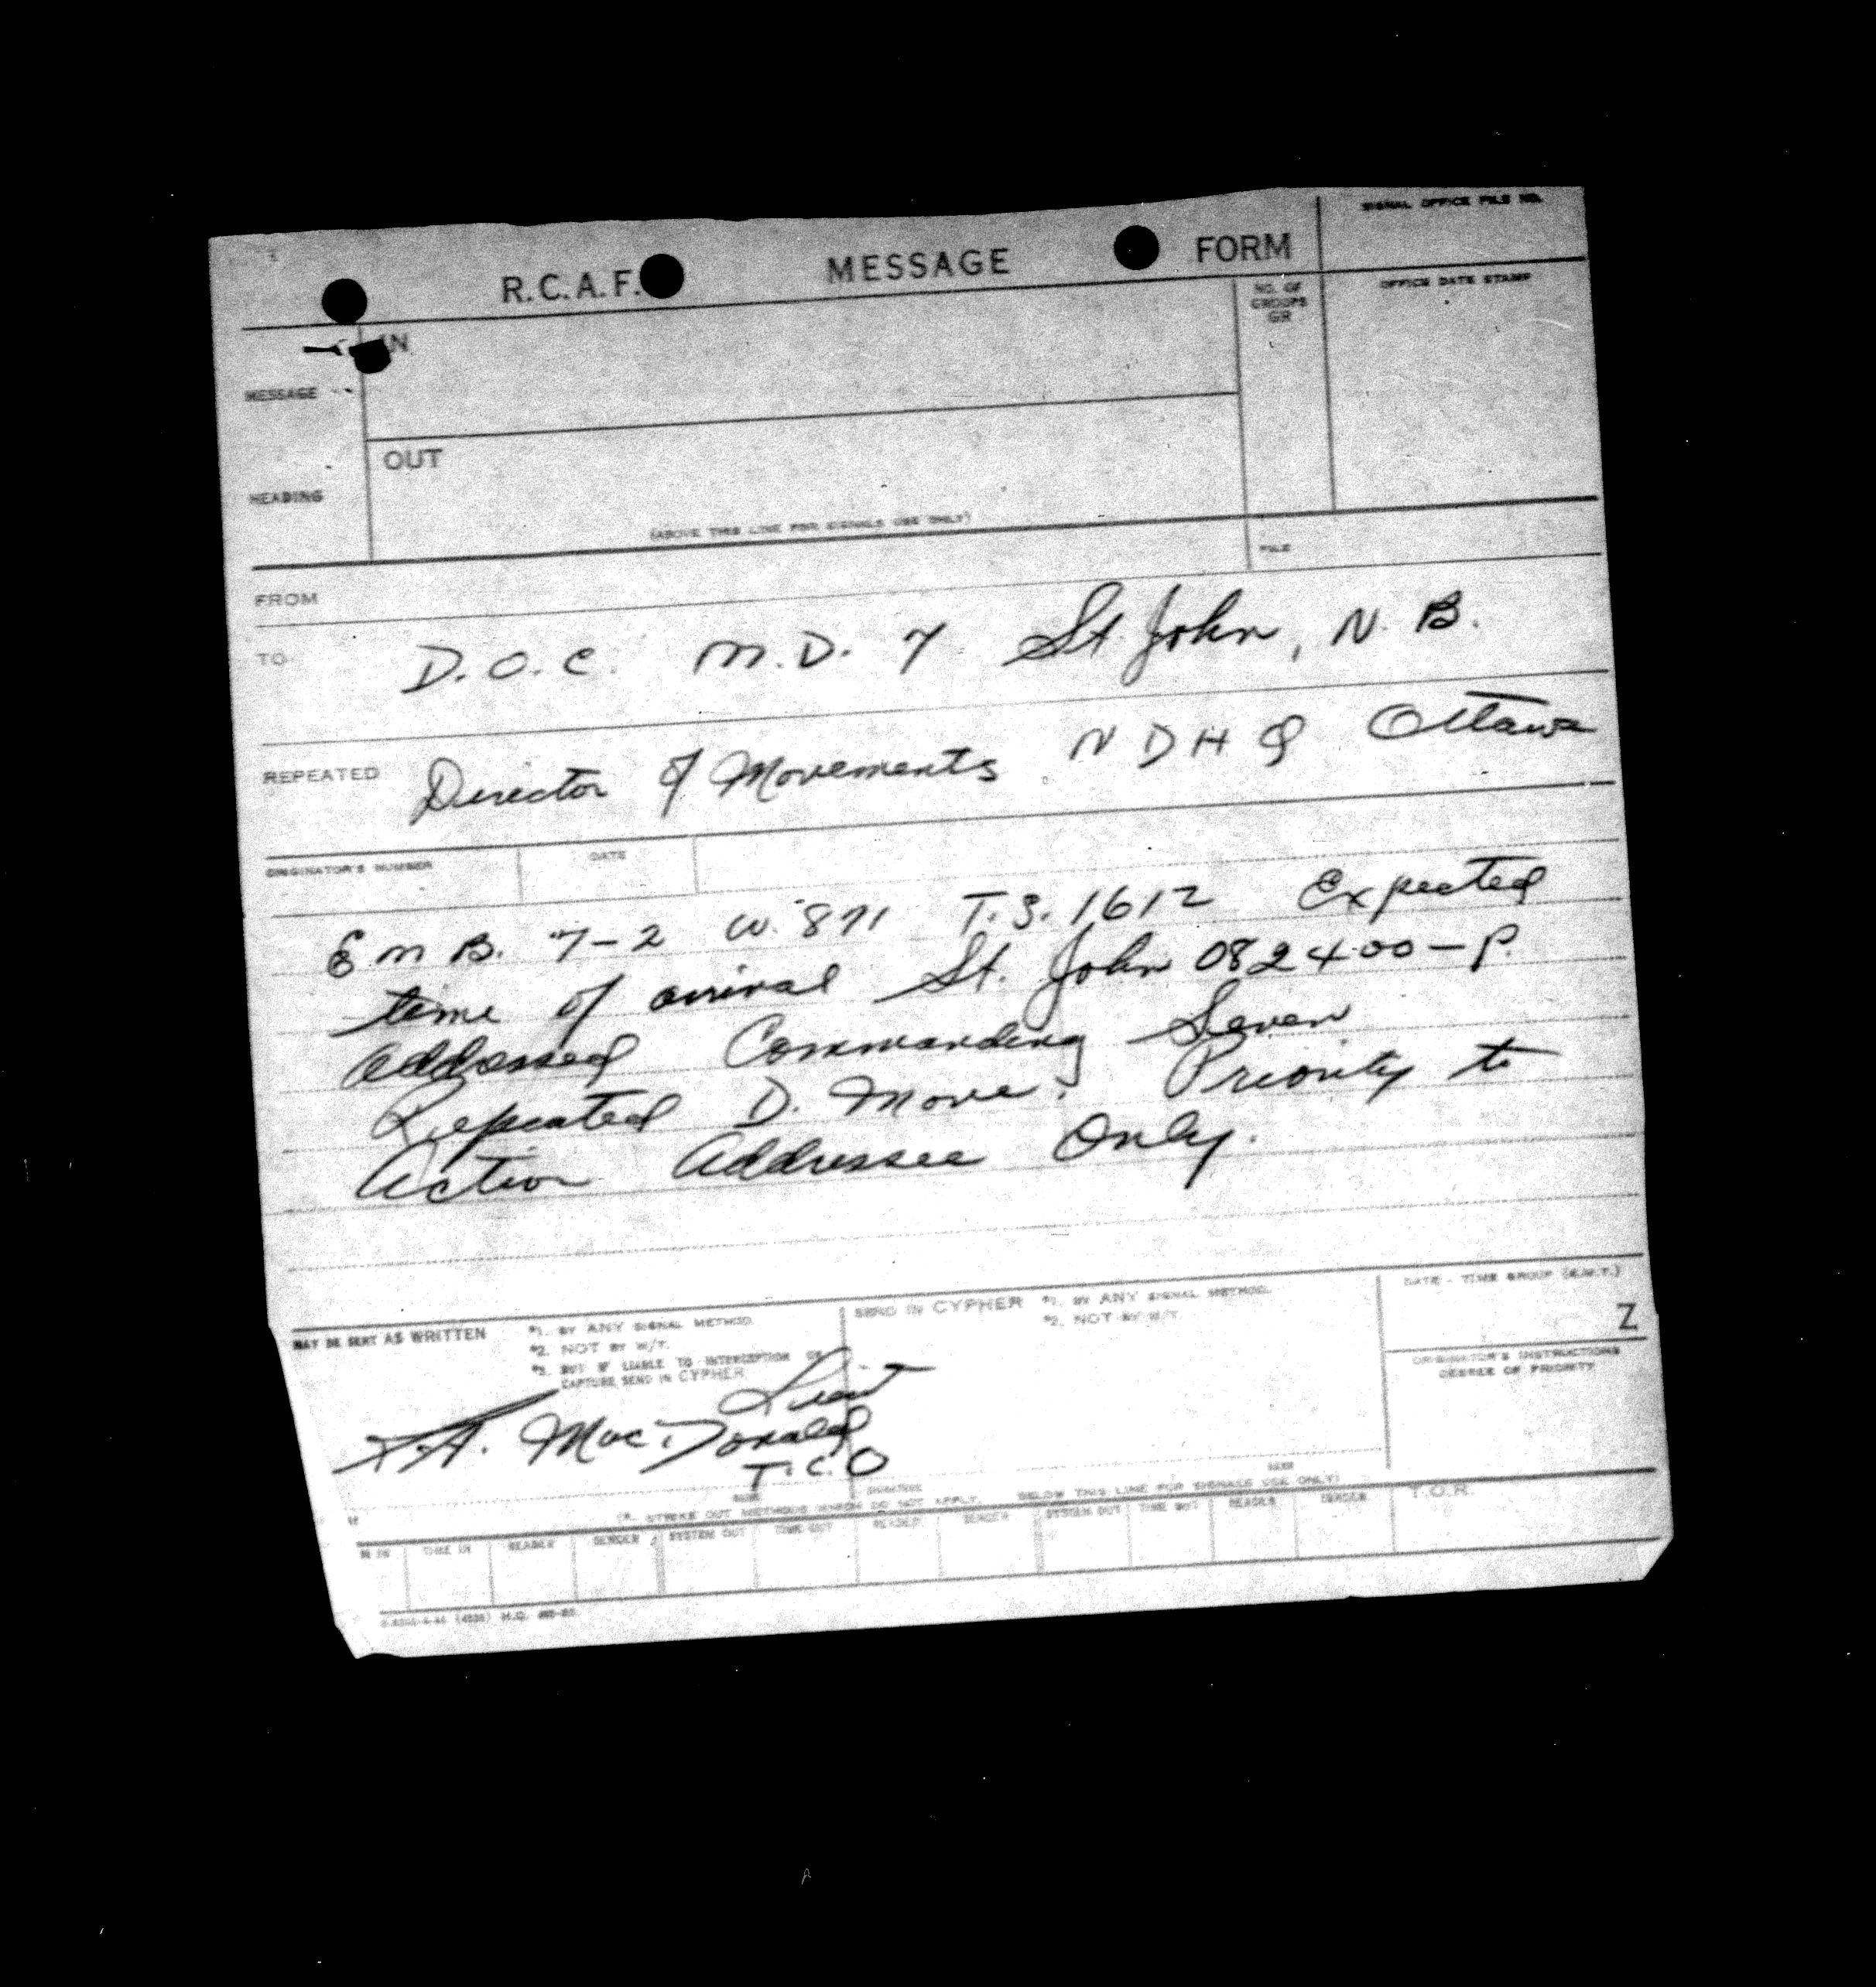 SIGNAL OFFICE FILE NO.
R.C.A.F. MESSAGE FORM
NO. OF GROUPS GR
OFFICE DATE STAMP
IN
MESSAGE
OUT
HEADING
(ABOVE THIS LINE FOR SIGNALS USE ONLY)
FILE
FROM
TO D.O.C. M.D. 7 St. John, N.B.
REPEATED Director of Movements N D H Q Ottawa
ORIGINATOR'S NUMBER DATE
E M B. 7-2 W. 871 T.S. 1612 Expected
time of arrival St. John 082400-P.
Addressed Commanding Seven
Repeated D. Move. Priority to
Action Addressee Only.
MAY BE SENT AS WRITTEN
*1. BY ANY SIGNAL METHOD.
*2. NOT BY W/T.
*3. BUT IF LIABLE TO INTERCEPTION OR
CAPTURE SEND IN CYPHER
SEND IN CYPHER *1. BY ANY SIGNAL METHOD.
*2. NOT BY W/T.
DATE - TIME GROUP (G.M.T.)
Z
ORIGINATOR'S INSTRUCTIONS
DEGREE OF PRIORITY
Lieut
MacDonald
T.C.O
SIGNATURE
RANK
(*. STRIKE OUT METHODS WHICH DO NOT APPLY. BELOW THIS LINE FOR SIGNALS USE ONLY)
TIME IN READER SENDER SYSTEM OUT TIME OUT READER SENDER SYSTEM OUT TIME OUT READER SENDER T.O.R.